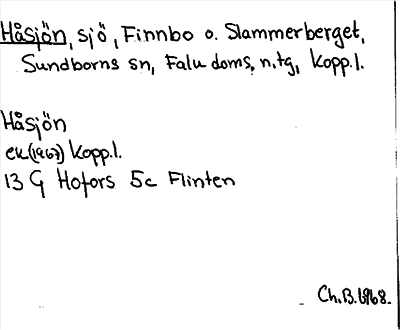 Håsjön, sjö, Finnbo o. Slammerberget,
Sundborns sn, Falu doms. n. tg, Kopp.l.
Håsjön
ek (1967) Kopp.l.
13 G Hofors 5c Flinten
Ch.B. 1968.